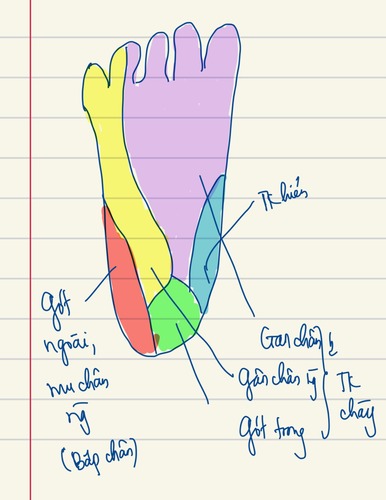 TK hiển
Gót
ngoài,
mu chân
ng̃
(Bắp chân)
Gan chân tr̃
Gan chân ng̃
gót trong
TK
chày